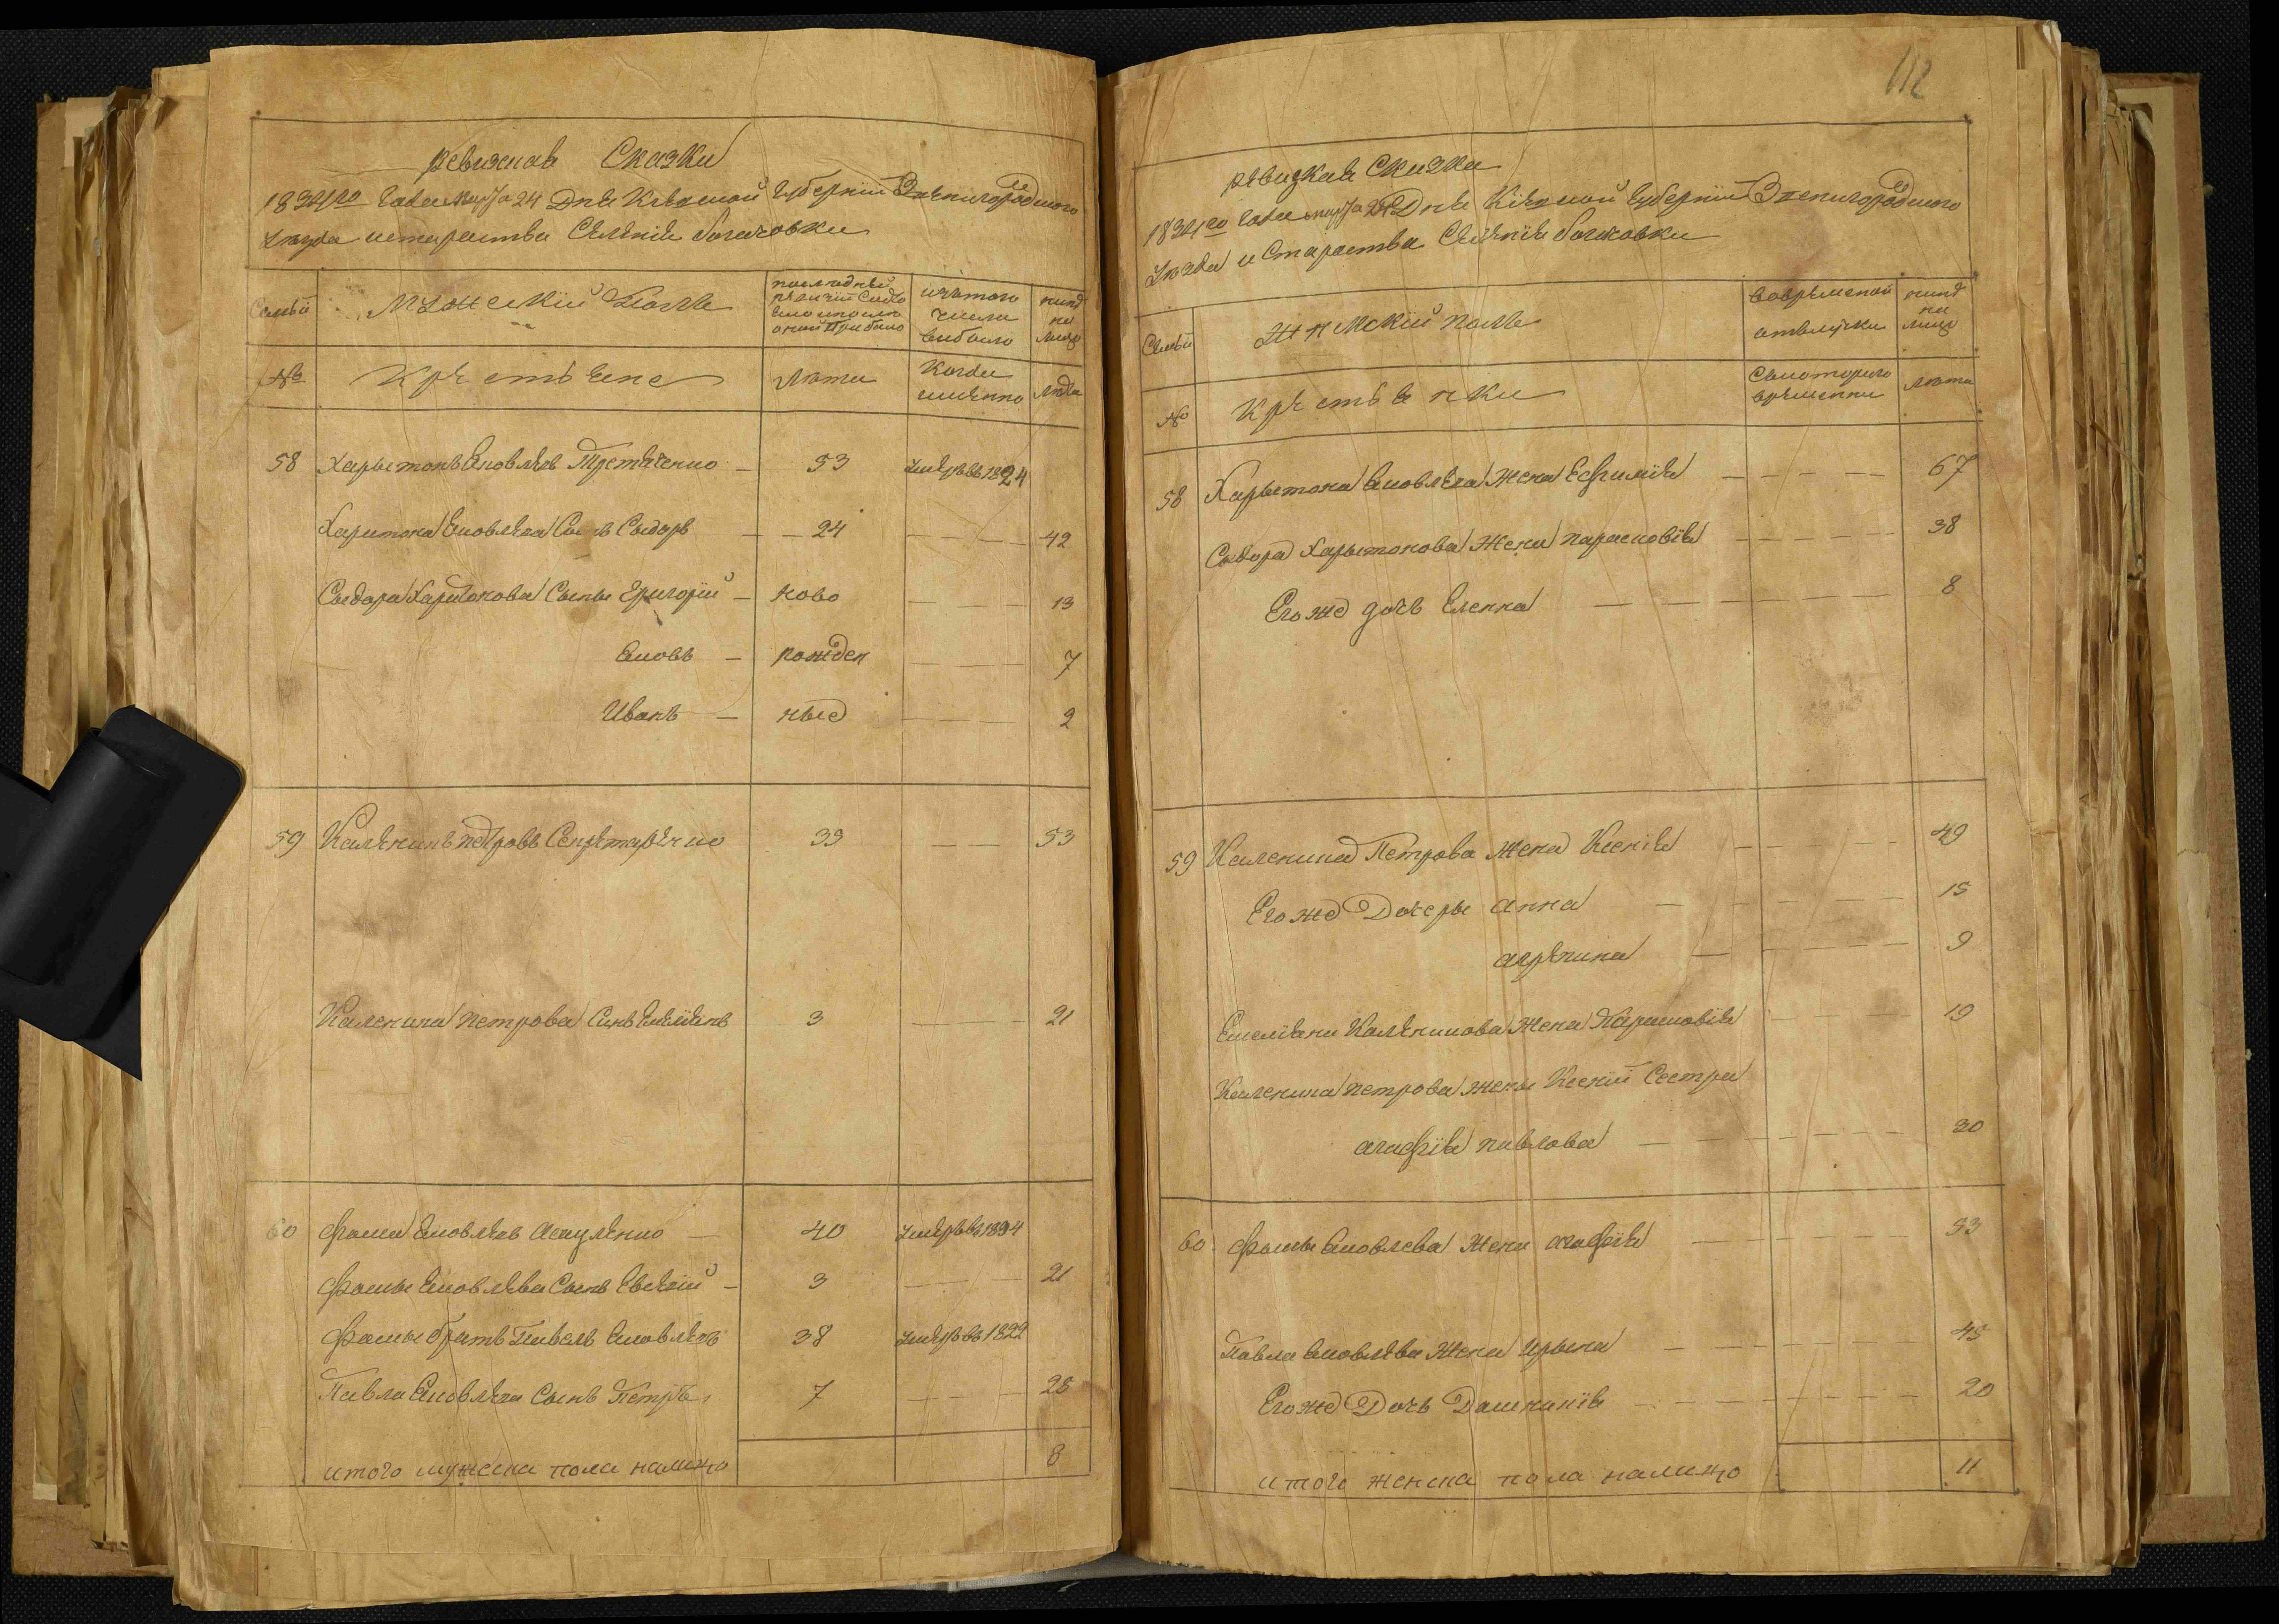 ревизская Сказка
1834го года марта 24 Дня Киевской Губернии Звенигородского
уезда и староства Селения
Семьи
Мужский полъ
последней ревизии состояло и после оной прибыло
изъ того числа выбыло
ныне на лицо
№
Крестьяне
Лета
Когда именно
Лета
58 Харытонъ Яковлевъ Третяченко — 53 умеръ въ 1824
Харитона Яковлева Сынъ Сыдоръ — 24 — 42
Сыдора Харитонова Сыны Григорий — ново — 13
Яковъ — рожден — 7
Иванъ — ные — 2
59 Каленикъ Петровъ Секретаренко 33 — 53
Каленика Петрова Синъ Емелiянъ 3 — 21
60 Фома Яковлевъ Акуленко — 40 умеръ въ 1834
Фомы Яковлева Сынъ Евсей — 3 — 21
Фомы братъ Павелъ Яковлевъ 38 умеръ въ 1822
Павла Яковлева Сынъ Петръ 7 — 25
итого мужеска пола налицо 8
112
ревизкая Сказка
1834го года марта 24 Дня Киевской Губернии Звенигородского
уезда и Староства Селения
Семьи
Женский полъ
во временной отлучки
ныне на лицо
№
Крестьянки
С которого времени
Лета
58 Харытона Яковлева Жена Ефимiя — 67
Сыдора Харытонова Жена Парасковiя — 38
Его же дочь Еленна — 8
59 Каленика Петрова Жена Ксенiя — 49
Его же Дочеры анна — 15
агрепина — 9
Емелiяна Каленикова Жена Параковiя — 19
Каленика Петрова жены Ксенiи Сестра
агафiя павлова — 30
60 Фомы Яковлева Жена агафiя — 53
Павла Яковлева Жена Ирына — 45
Его же Дочь Домникiя — 20
итого женска пола налицо 11